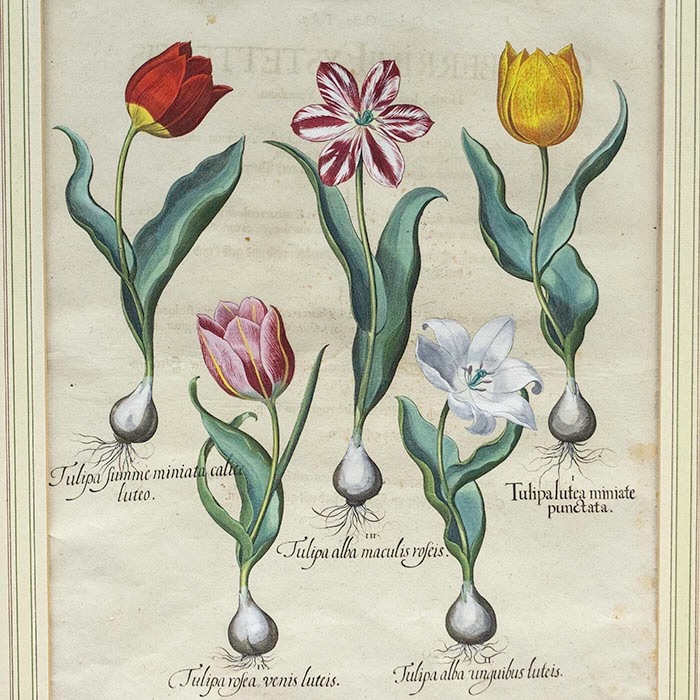 Tulipa summe miniata calice
luteo.
I
Tulipa lutea miniate
punctata.
III
Tulipa alba maculis roseis.
Tulipa rosea venis luteis.
Tulipa alba unguibus luteis.